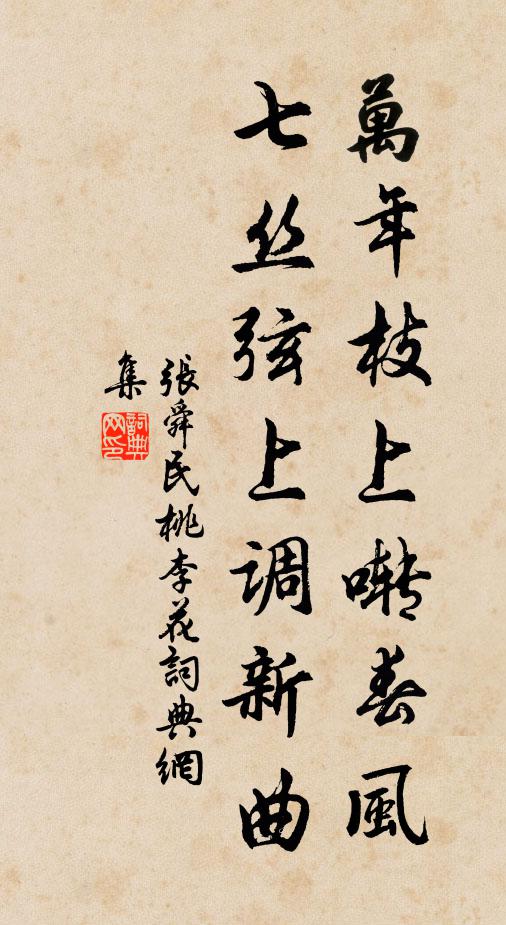 萬年枝上囀春風
七丝弦上调新曲
張舜民桃李花詞典網
集
詞典
网印